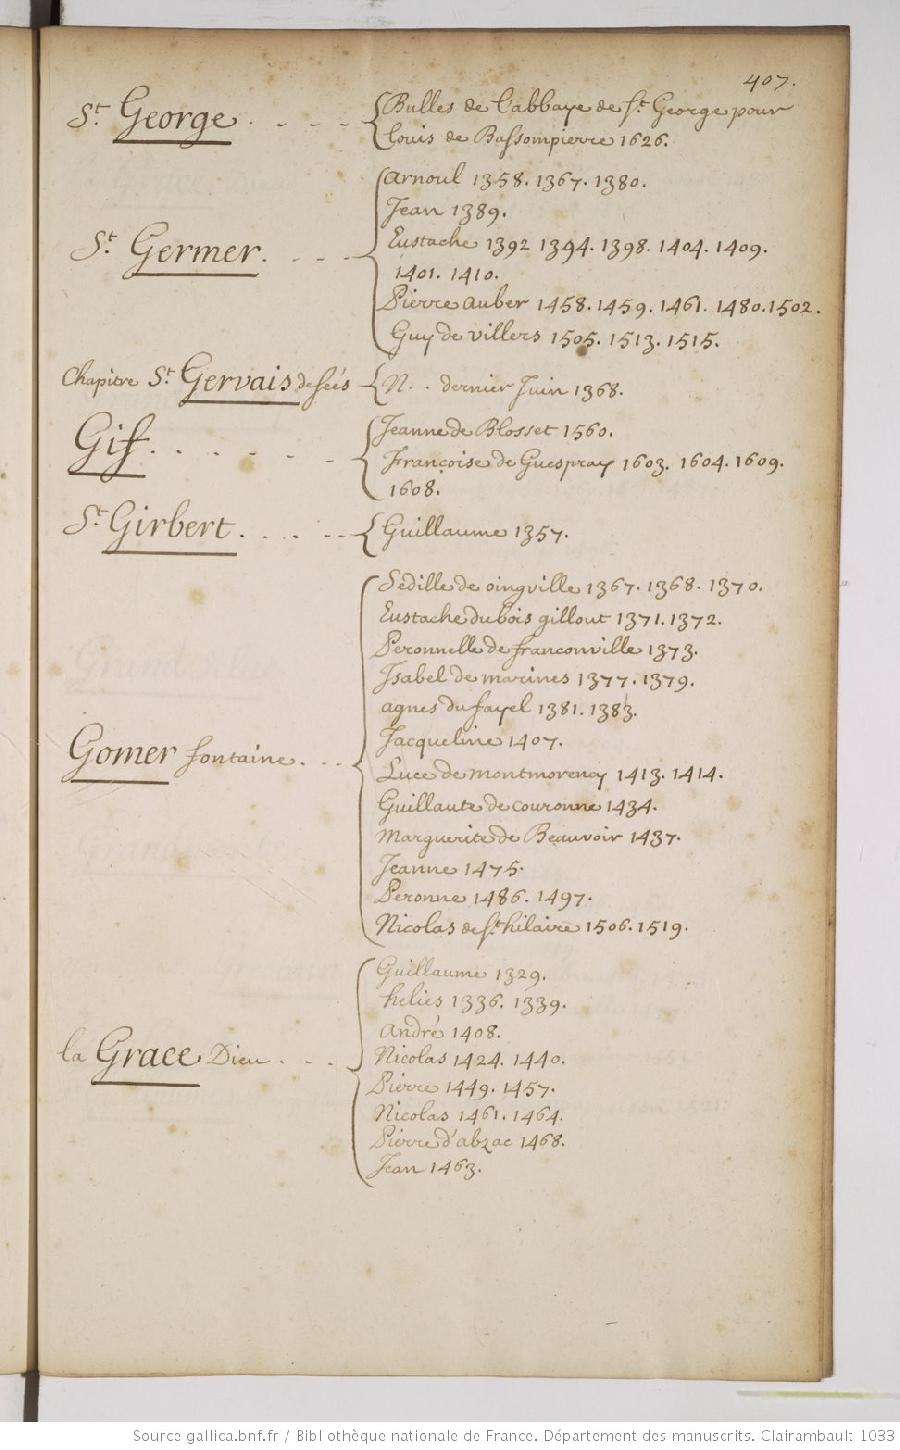 407.
St. George
Bulles de l'abbaye de St. George pour
Louis de Bassompierre 1626.
St. Germer.
Arnoul 1358. 1367. 1380.
Jean 1389.
Eustache 1392 1394. 1398. 1404. 1409.
1401. 1410.
Pierre auber 1458. 1459. 1461. 1480. 1502.
Guy de villers 1505. 1513. 1515.
Chapitre St. Gervais de Séés
N. . dernier Juin 1368.
Gif.
Jeanne de Blosset 1560.
Françoise de Guespray 1603. 1604. 1609.
1608.
St. Girbert.
Guillaume 1357.
Gomer fontaine.
Sedille de oingville 1367. 1368. 1370.
Eustache du bois gillout 1371. 1372.
Peronnelle de franconville 1373.
Isabel de marines 1377. 1379.
agnes du fayel 1381. 1383.
Jacqueline 1407.
Luce de montmorency 1413. 1414.
Guillaute de couronne 1434.
Marguerite de Beauvoir 1437.
Jeanne 1475.
Peronne 1486. 1497.
Nicolas de St. hilaire 1506. 1519.
la Grace Dieu
Guillaume 1329.
helies 1336. 1339.
André 1408.
Nicolas 1424. 1440.
Pierre 1449. 1457.
Nicolas 1461. 1464.
Pierre d'abzac 1468.
Jean 1463.
Source gallica.bnf.fr / Bibliothèque nationale de France. Département des manuscrits. Clairambault 1033